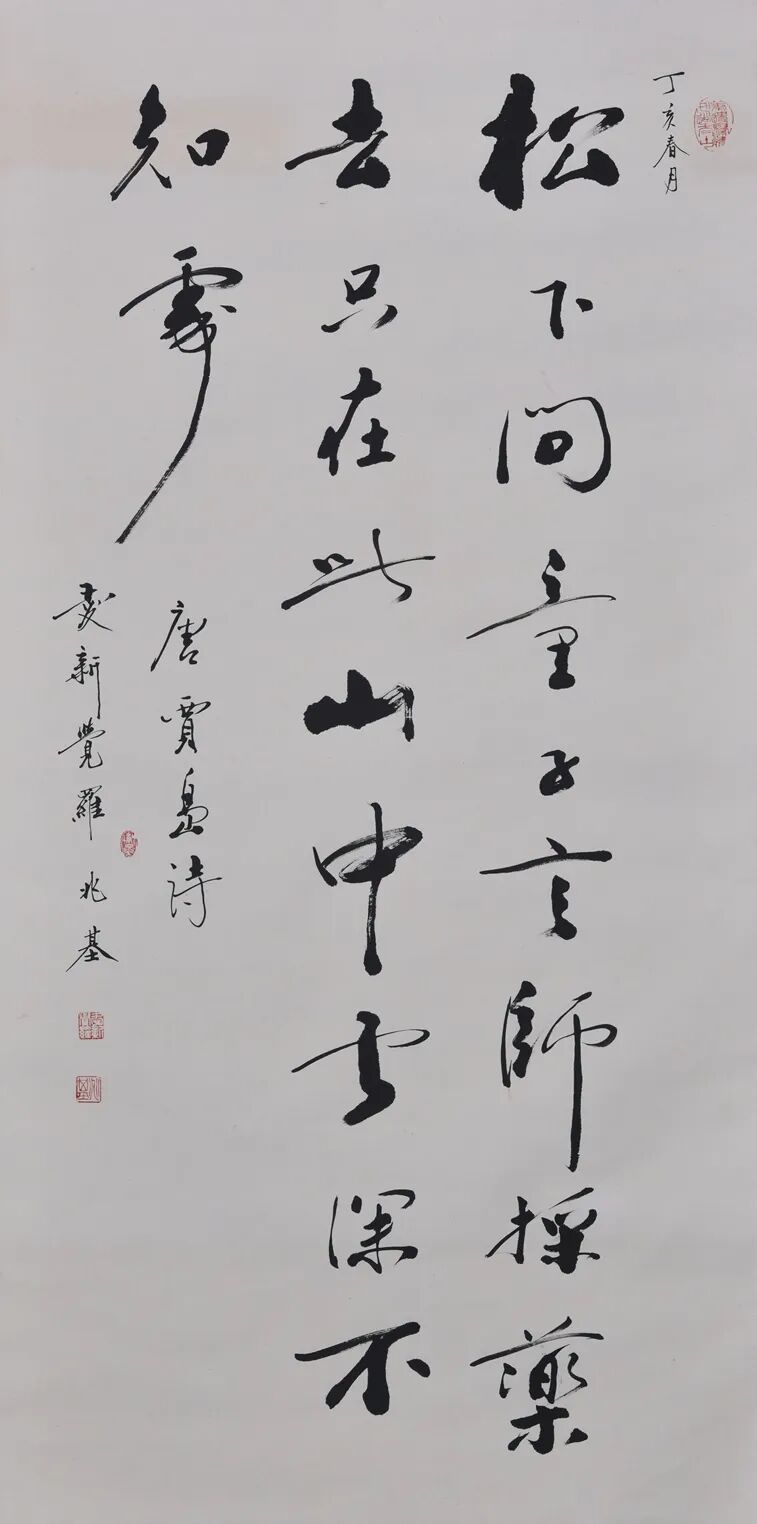 丁亥春月
松下问童子言師採藥
去只在此山中云深不
知處
唐賈島詩
愛新覺羅兆基